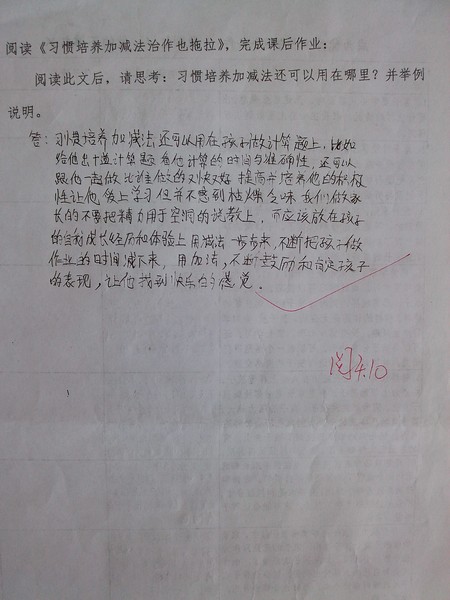 阅读《习惯培养加减法治作也拖拉》，完成课后作业：
阅读此文后，请思考：习惯培养加减法还可以用在哪里？并举例
说明。
答：习惯培养加减法还可以用在孩子做计算题上，比如
给他出十道计算题看他计算的时间与准确性，还可以
跟他一起做比谁做的又快又好 提高并培养他的积极
性让他爱上学习但并不感到枯燥乏味 我们做家
长的不要把精力用于空洞的说教上，而应该放在孩子
的自我成长经历和体验上用减法一步步来，不断把孩子做
作业的时间减下来，用加法，不断鼓励和肯定孩子
的表现，让他找到快乐的感觉。
阅 4.10